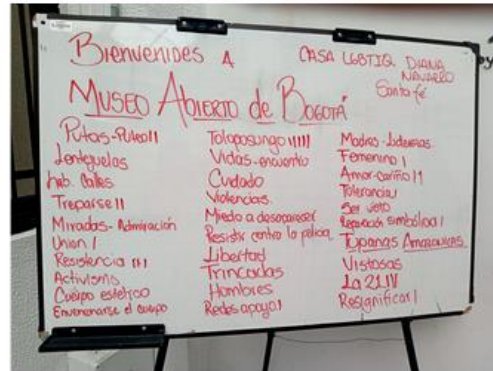 Bienvenides A
CASA LGBTIQ DIANA NAVARRO
Santa fé
MUSEO ABIERTO de BOGOTÁ
Putas-Puteo II
Lentejuelas
hab. Calles
Treparse II
Miradas-Admiración
Union I
Resistencia III
Activismo
Cuerpo estetico
Envenenarse el cuerpo
Toloposungo IIIII
Vidas-encuentro
Cuidado
Violencias
Miedo a desaparecer
Resistir contra la policia
Libertad
Trincadas
Hombres
Redes apoyo I
Madres-Luderas
Femenino I
Amor-cariño II
Tolerancia I
Ser visto
Reparación simbólica I
Tupanas Amazonicas
Vistosas
La 21 IV
Resignificar I